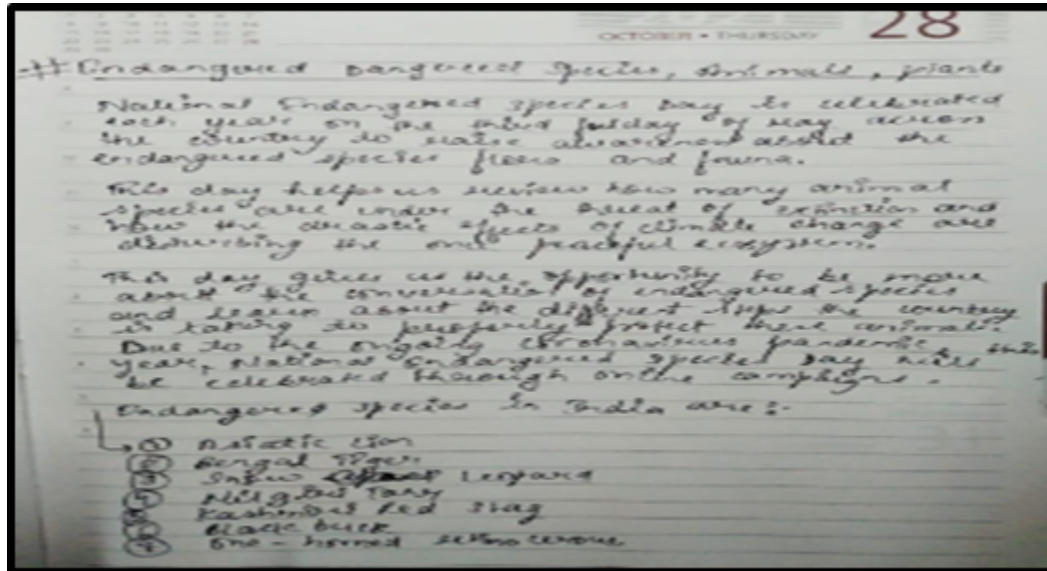 OCTOBER • THURSDAY
28
Endangered Dangered Species, Animals, plants
National Endangered species Day is celebrated
each year on the third friday of May across
the country to raise awareness about the
endangered species flora and fauna.
This day helps us review how many animal
species are under the threat of extinction and
how the drastic effects of climate change are
disturbing the once peaceful ecosystem.
This day gives us the opportunity to be more
about the conversation of endangered species
and learn about the different steps the country
is taking to properly protect these animals.
Due to the ongoing coronavirus pandemic this
year, National Endangered Species Day will
be celebrated through online campaigns.
Endangered species in India are :-
① Asiatic lion
② Bengal Tiger
③ Snow Leopard
Nilgiri Tahr
Kashmiri Red Stag
Black buck
One-horned